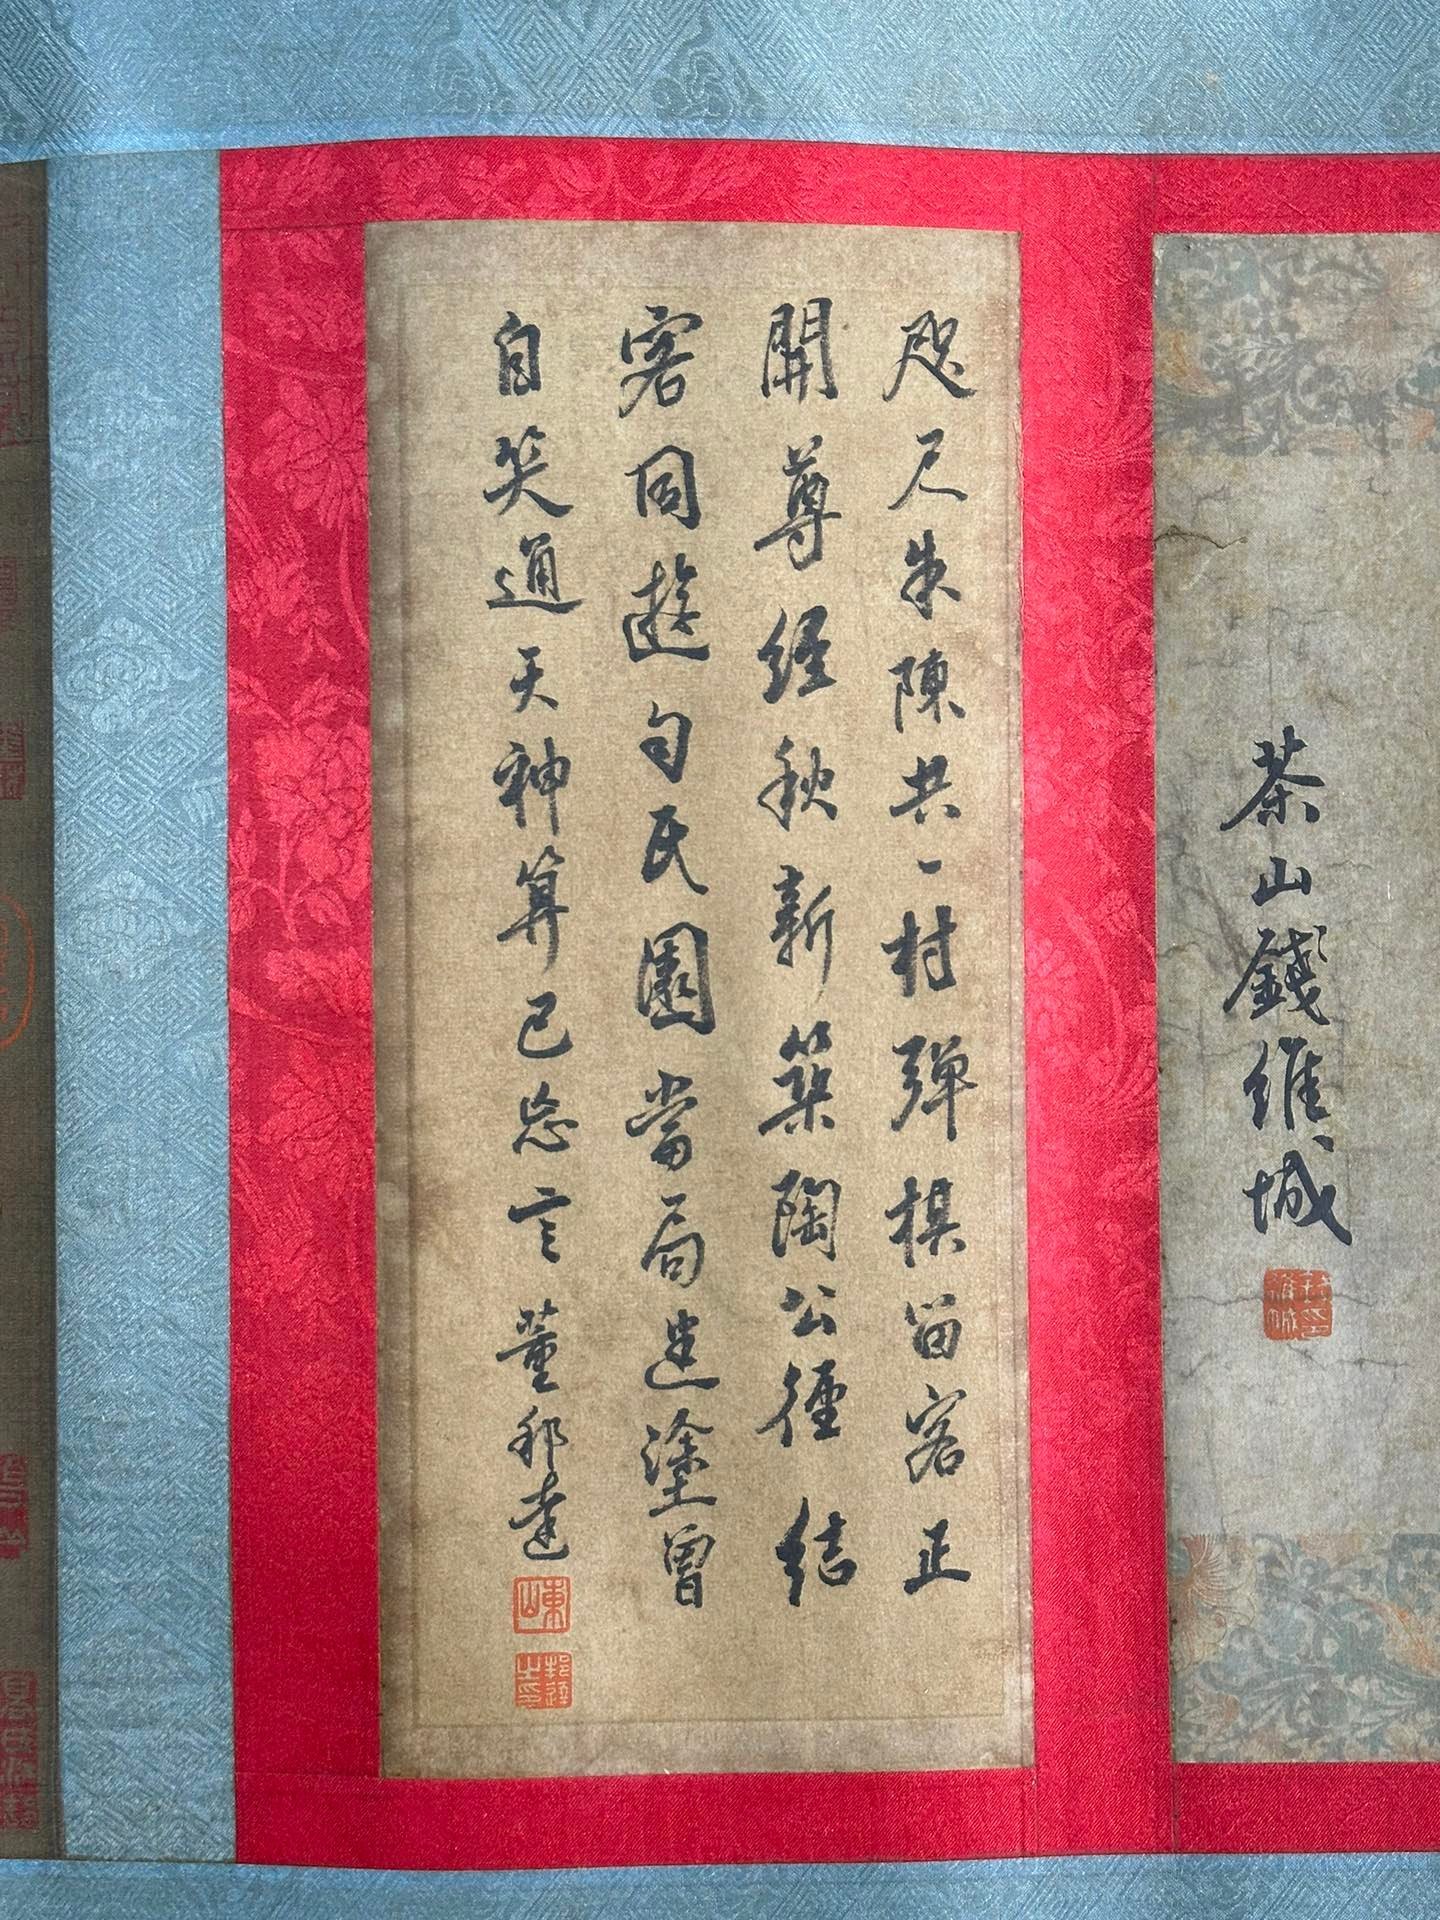 茶山錢維城
咫尺朱陳共一村彈棋留客正
開尊經秋新築陶公徑結
客同遊句氏園當局迷塗曾
自笑通天神算已忘言 董邦達
東山
邦達之印